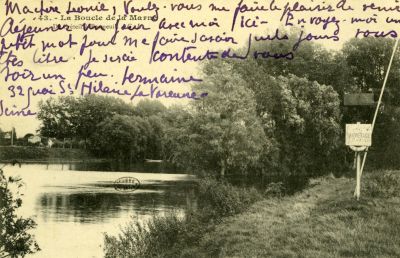 Ma chère Léonie, Voulez-vous me faire le plaisir de venir
43. - La Boucle de la Marne
Déjeuner un jour avec moi ici - Envoyez-moi un
petit mot pour me faire savoir quels jours vous
êtes libre. Je serais contente de vous
voir un peu. Germaine
32 quai St Hilaire La Varenne
Seine